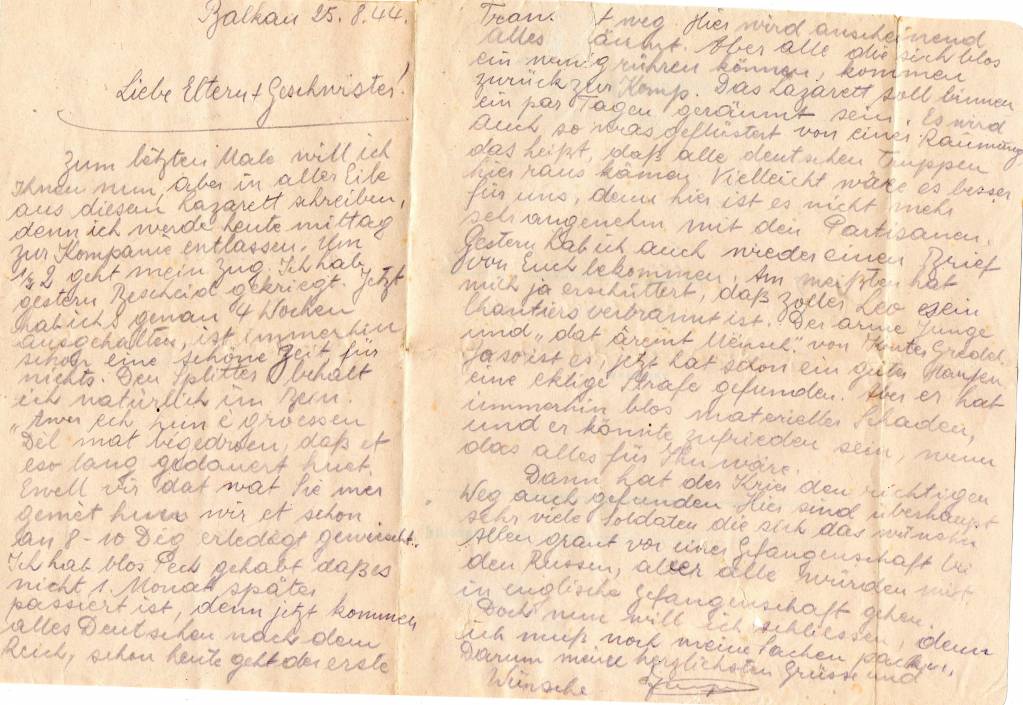 Balkan 25.8.44.
Liebe Eltern + Geschwister!
Zum letzten Male will ich
Ihnen nun, aber in aller Eile
aus diesem Lazarett schreiben,
denn ich werde heute mittag
zur Kompanie entlassen. Um
½ 2 geht mein Zug. Ich hab
gestern Bescheid gekriegt. Jetzt
hab ichs genau 4 Wochen
ausgehalten, ist immerhin
schon eine schöne Zeit für
nichts. Den Splitter behalt
ich natürlich im Bein.
„Awer ech hun e groessen
Deel mat begedroen, daß et
eso lang gedauert huet,
Ewell vir dat wat Sie mer
gemet hun wir et schon
an 8-10 Deg erledigt gewiescht.
Ich hab blos Pech gehabt daß es
nicht 1. Monat später
passiert ist, denn jetzt kommen
alles Deutschen nach dem
Reich, schon heute geht der erste
Tran. t weg. Hier wird anscheinend
alles äumt. Aber alle die sich blos
ein wenig rühren können, kommen
zurück zur Komp. Das Lazarett soll binnen
ein par Tagen geräumt sein. Es wird
auch so was geflüstert von einer Räumung
das heißt, daß alle deutschen Truppen
hier raus kämen. Vielleicht wäre es besser
für uns, denn hier ist es nicht mehr
sehr angenehm mit den Partisanen.
Gestern hab ich auch wieder einen Brief
von Euch bekommen. Am meißten hat
mich ja erschüttert, daß Zoller Leo sein
Chantiers verbrannt ist. Der arme Junge
und „dat äremt Mensch" von
Ja so ist es, jetzt hat schon ein guter
eine eklige Strafe gefunden. Aber er hat
immerhin blos materielles Schaden,
und er könnte zufrieden sein, wenn
das alles für Ihn wäre.
Dann hat der Krieg den richtigen
Weg auch gefunden. Hier sind überhaupt
sehr viele Soldaten die sich das wünschen
Allen graut vor einer Gefangenschaft bei
den Russen, aber alle würden mit
in englische Gefangenschaft gehen.
Doch nun will ich schliessen, denn
ich muß noch meine Sachen packen.
Darum meine herzlichsten Grüsse und
Wünsche